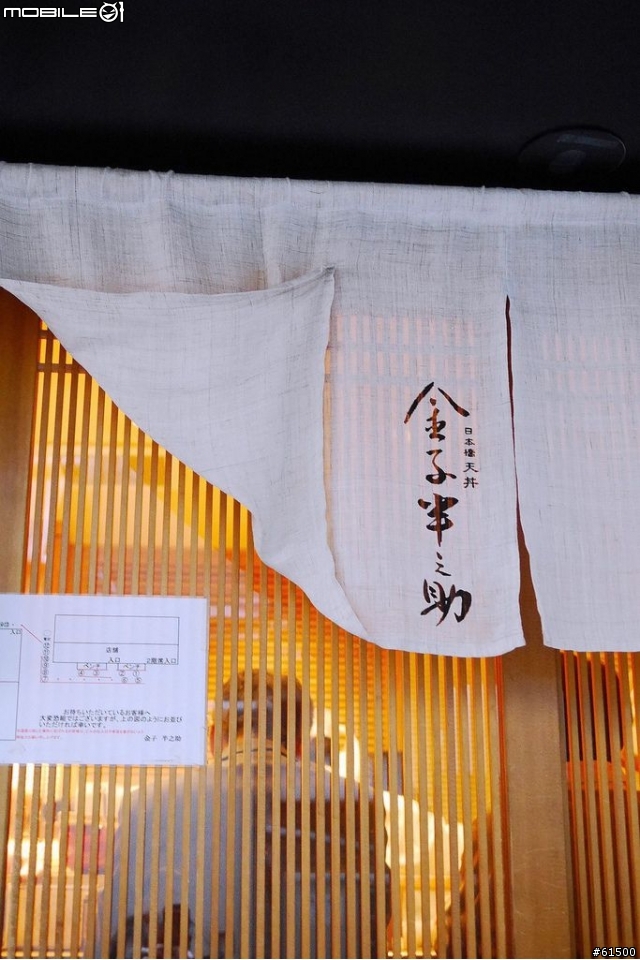 MOBILE01
日本橋 天丼
金子半之助
入口
店舗
入口
2階席入口
ベンチ
ベンチ
④ ③
② ①
⑥ ⑤
お待ちいただいているお客様へ
大変恐縮ではございますが、上の図のようにお並び
いただければ幸いです。
金子 半之助
#61500